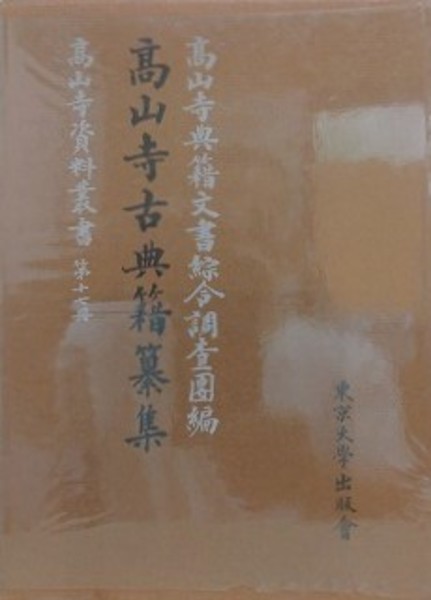 高山寺典籍文書綜合調査團編
高山寺古典籍纂集
高山寺資料叢書 第十七冊
東京大學出版會